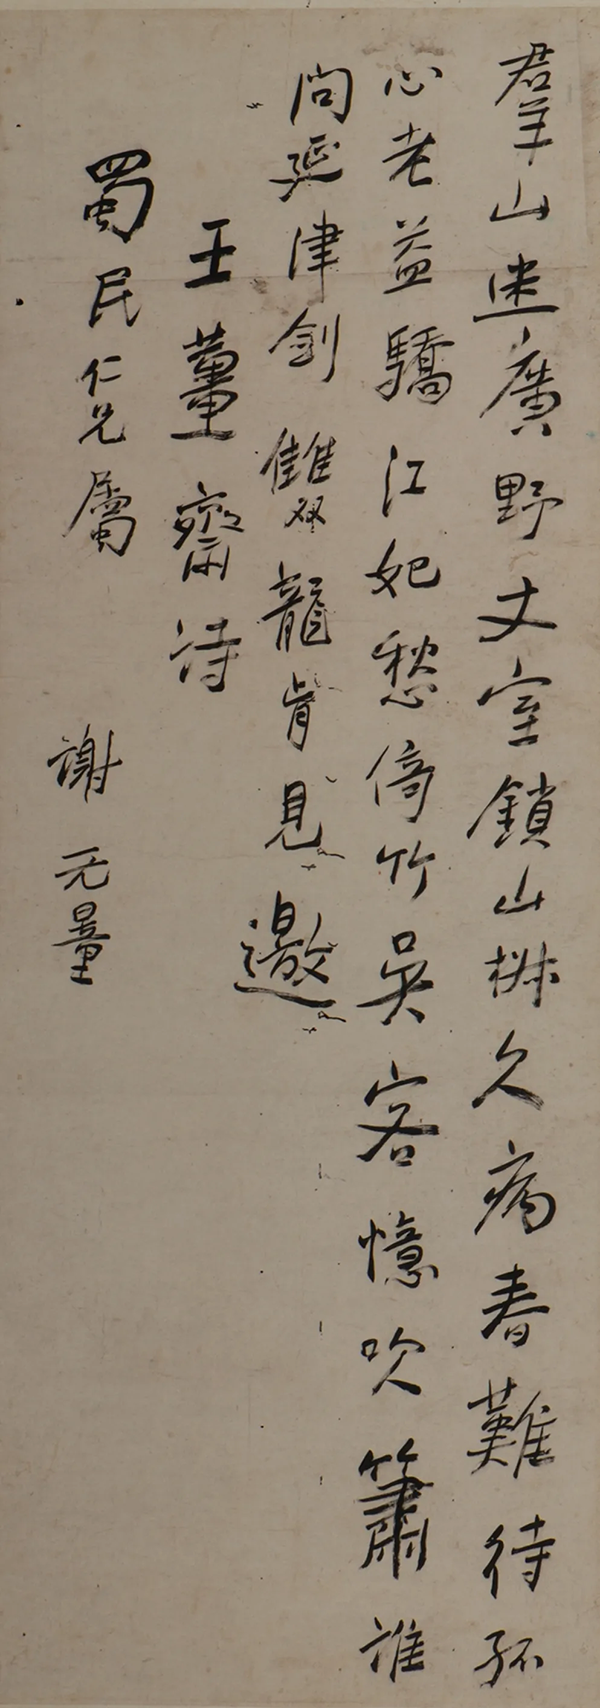 羣山迷廣野丈室鎖山椒久病春難待孤
心老益驕江妃愁倚竹吳客憶吹簫誰
問延津劍雙龍肯見邀
王薑齋詩
蜀民仁兄屬
謝无量